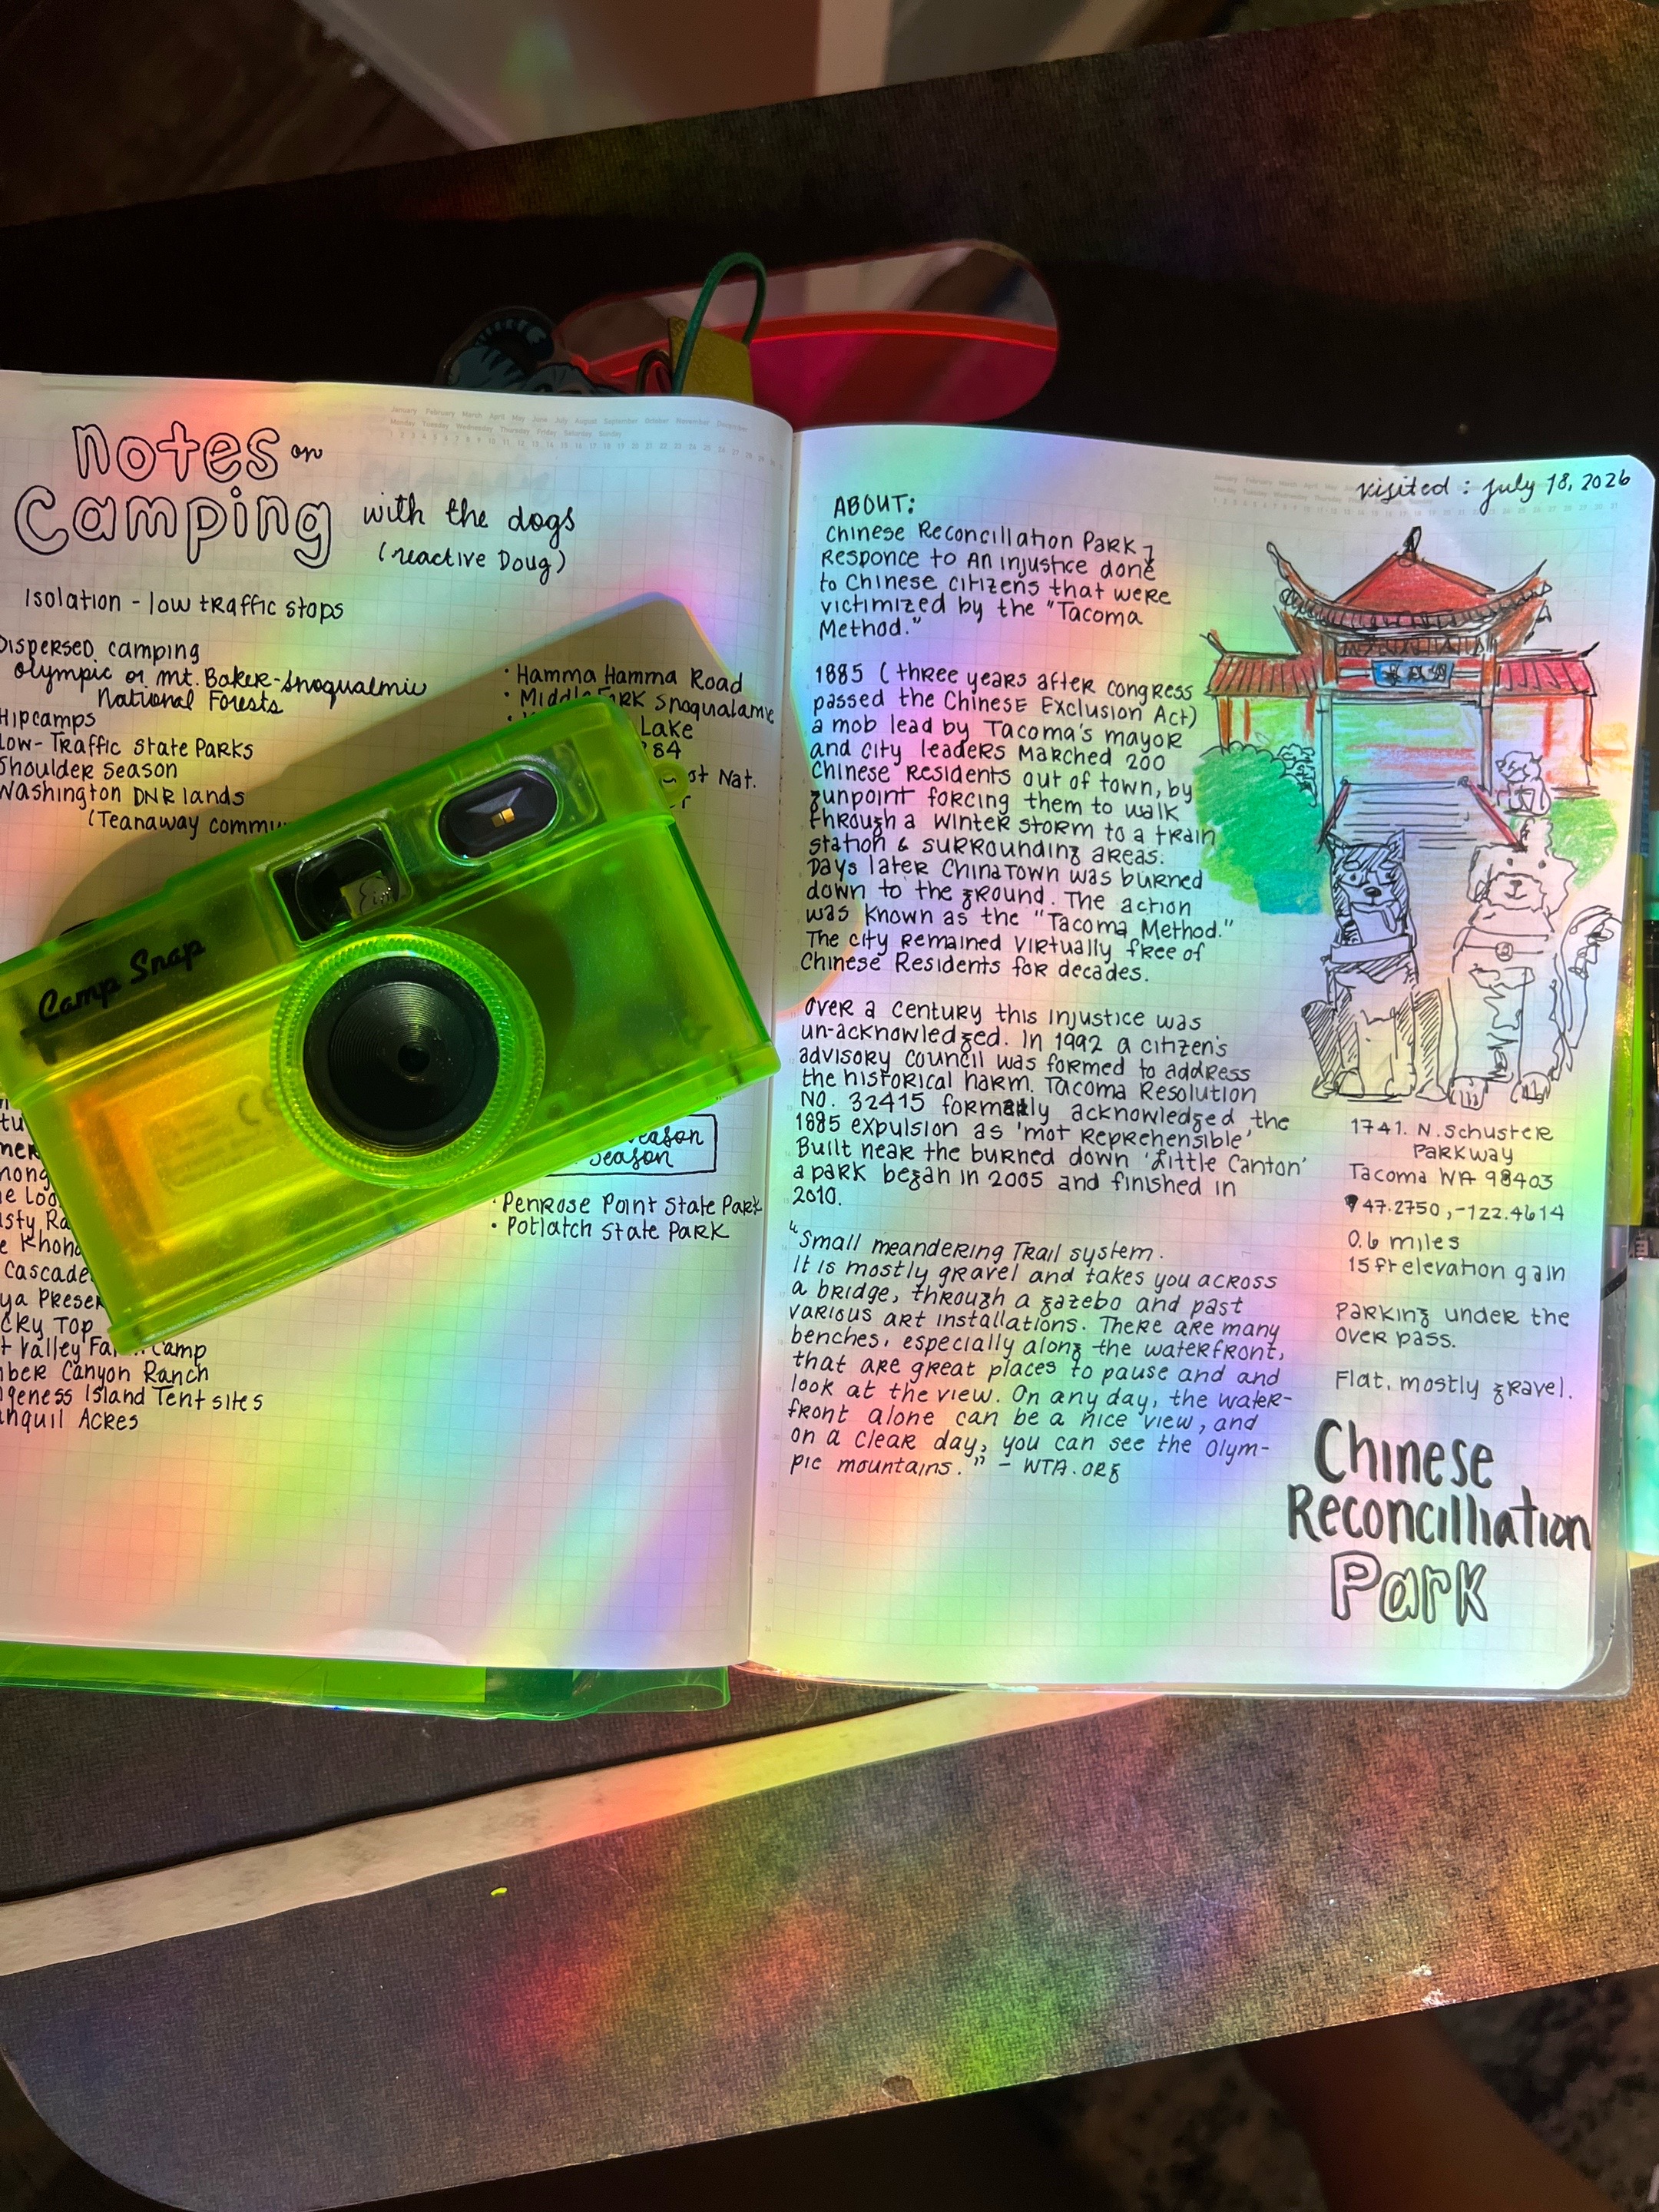 notes on
Camping with the dogs
(reactive Doug)
Isolation - low traffic stops
Dispersed camping
Olympic or Mt. Baker-Snoqualmie
National Forests
Hipcamps
Low-Traffic State Parks
Shoulder Season
Washington DNR lands
(Teanaway
• Hamma Hamma Road
• Middle Fork Snoqualamie
Lake
Nat.
Camp Snap
CE
Season
Season
• Penrose Point State Park
• Potlatch State Park
Cascade
Top
Valley Camp
Canyon Ranch
Island Tent sites
Acres
January February March April May June July August September October November December
Monday Tuesday Wednesday Thursday Friday Saturday Sunday
visited: July 18, 2026
ABOUT:
Chinese Reconcillation Park
Responce to An injustice done
to Chinese citizens that were
victimized by the "Tacoma
Method."
1885 (three years after congress
passed the Chinese Exclusion Act)
a mob lead by Tacoma's mayor
and city leaders marched 200
Chinese Residents out of town, by
gunpoint forcing them to walk
through a winter storm to a train
station & surrounding areas.
Days later Chinatown was burned
down to the ground. The action
was known as the "Tacoma Method."
The city remained virtually free of
Chinese Residents for decades.
Over a century this injustice was
un-acknowledged. In 1992 a citizen's
advisory council was formed to address
the historical harm. Tacoma Resolution
No. 32415 formally acknowledged the
1885 expulsion as 'mot reprehensible'
Built near the burned down 'Little Canton'
a park began in 2005 and finished in
2010.
"Small meandering Trail system.
It is mostly gravel and takes you across
a bridge, through a gazebo and past
various art installations. There are many
benches, especially along the waterfront,
that are great places to pause and and
look at the view. On any day, the water-
front alone can be a nice view, and
on a clear day, you can see the Olym-
pic mountains." - WTA.org
1741. N. Schuster
Parkway
Tacoma WA 98403
47.2750, -122.4614
0.6 miles
15ft elevation gain
Parking under the
over pass.
Flat, mostly gravel.
Chinese
Reconcilliation
Park